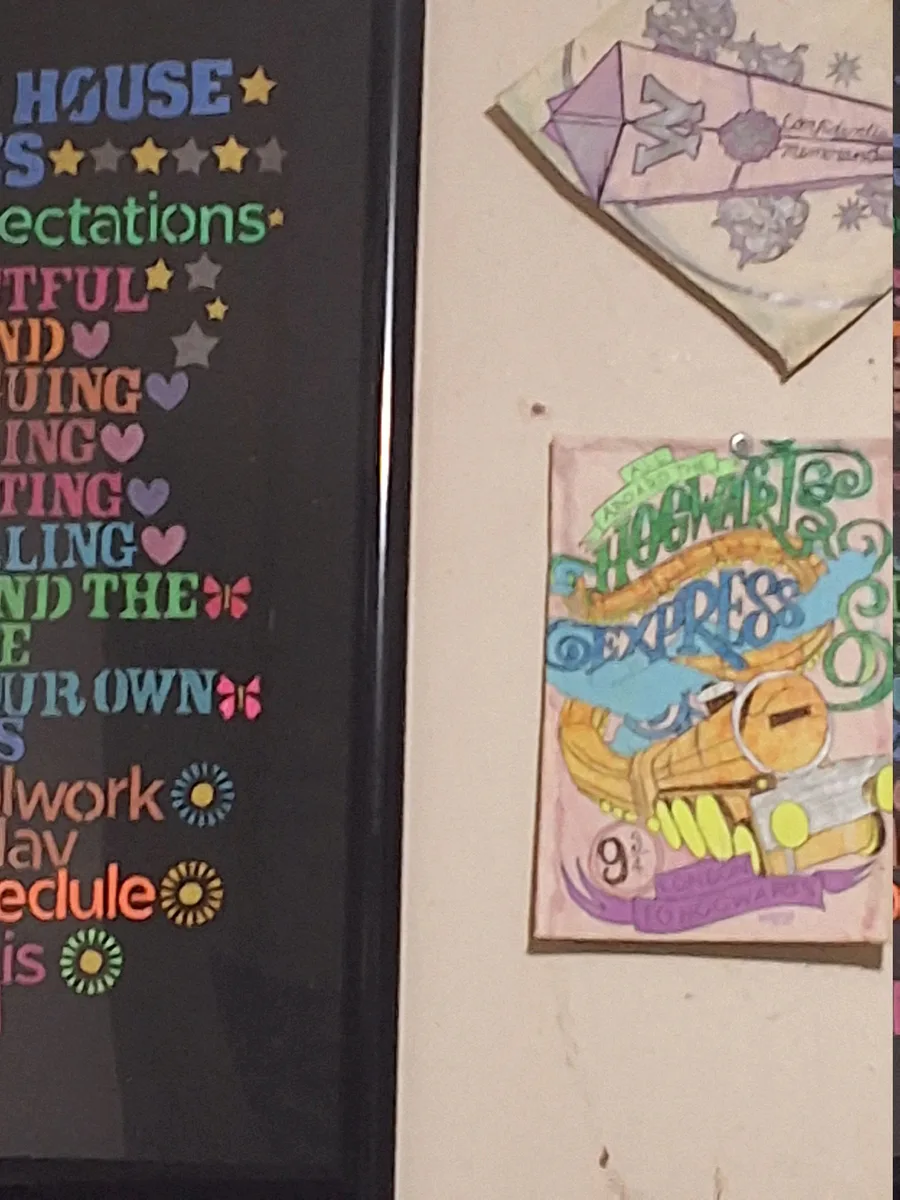 HOUSE
S
ectations
TFUL
ND
UING
ING
TING
LING
ND THE
E
UR OWN
S
lwork
lay
edule
is
W
Confidential
ALL
ABOARD THE
HOGWARTS
EXPRESS
9 3/4
LONDON
TO HOGWARTS